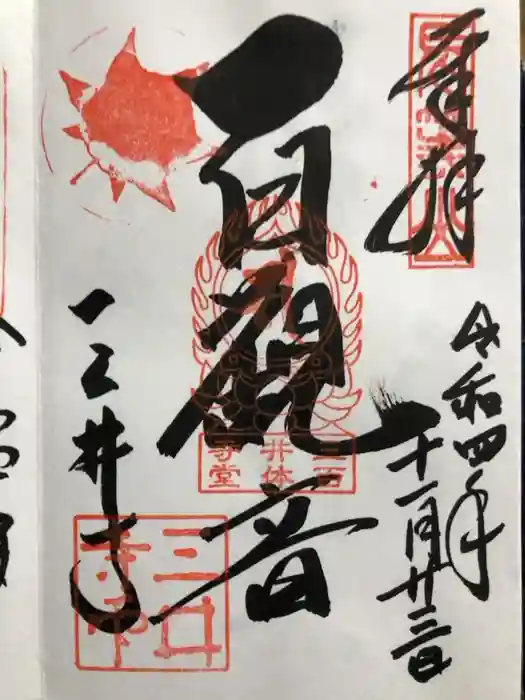 奉拝
令和四年
十一月廿三日
百観音
三井
百体
寺堂
三井寺
三井
寺印